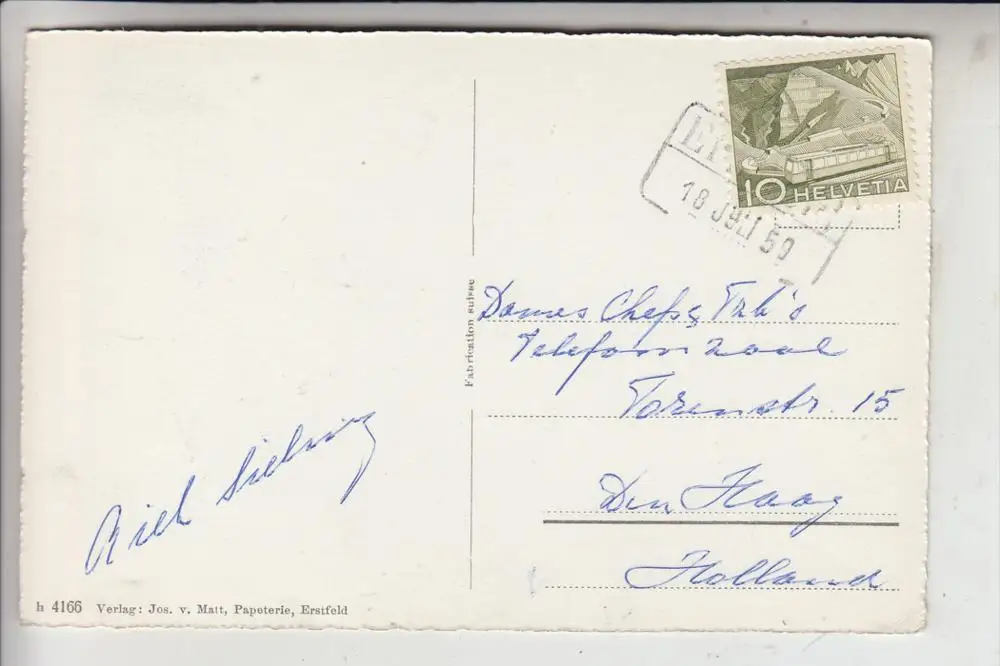 10 HELVETIA
18 JULI 50
Fabrication suisse
Dames Chefs &
Telefoonzaal
Torenstr. 15
Den Haag
Holland
h 4166 Verlag: Jos. v. Matt, Papeterie, Erstfeld